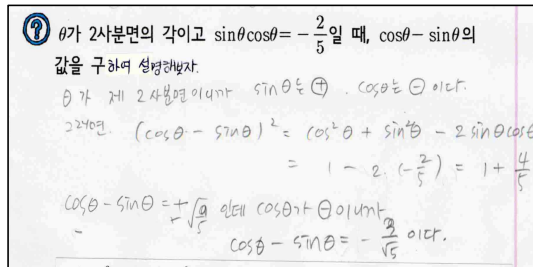 ? θ가 2사분면의 각이고 sinθcosθ= -2/5일 때, cosθ-sinθ의
값을 구하여 설명해보자.
θ가 제 2사분면이니까 sinθ는 ⊕, cosθ는 ⊖이다.
그러면. (cosθ - sinθ)² = cos²θ + sin²θ - 2sinθcosθ
= 1 - 2·(-2/5) = 1 + 4/5
cosθ - sinθ = ±√9/5 인데 cosθ가 ⊖이니까
cosθ - sinθ = -3/√5 이다.